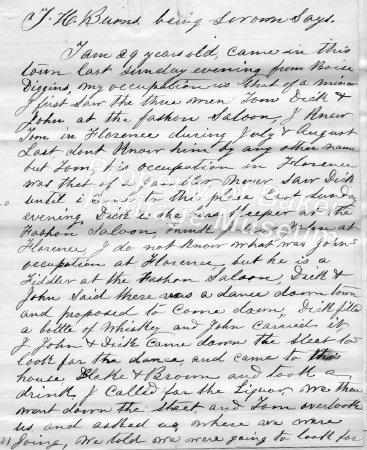 J. H. Burns being sworn says.
I am 29 years old, came in this
town last Sunday evening from Boise
Diggins, my occupation is that of a miner
I first saw the three men Tom Dick &
John at the Fashon Saloon, I Knew
Tom in Florence during July & August
Last dont Know him by any other name
but Tom, his occupation in Florence
was that of a Gambler never saw Dick
until in this place last Sunday
evening Dick is the Bar Keeper at the
Fashon Saloon, I saw John at
Florence, I do not Know what was John's
occupation at Florence, but he is a
Fidder at the Fashon Saloon, Dick &
John said there was a dance down town
and proposed to come down, Dick fild
a bottle of whiskey and John carried it
J. John & Dick came down the Steet to
look for the dance and came to this
house Blake & Brown and took a
drink, I called for the Liquor, we then
went down the steet and Tom overtook
us and asked us, where we were
Going, we told we were going to look for
Property of Baker
Heritage Museum